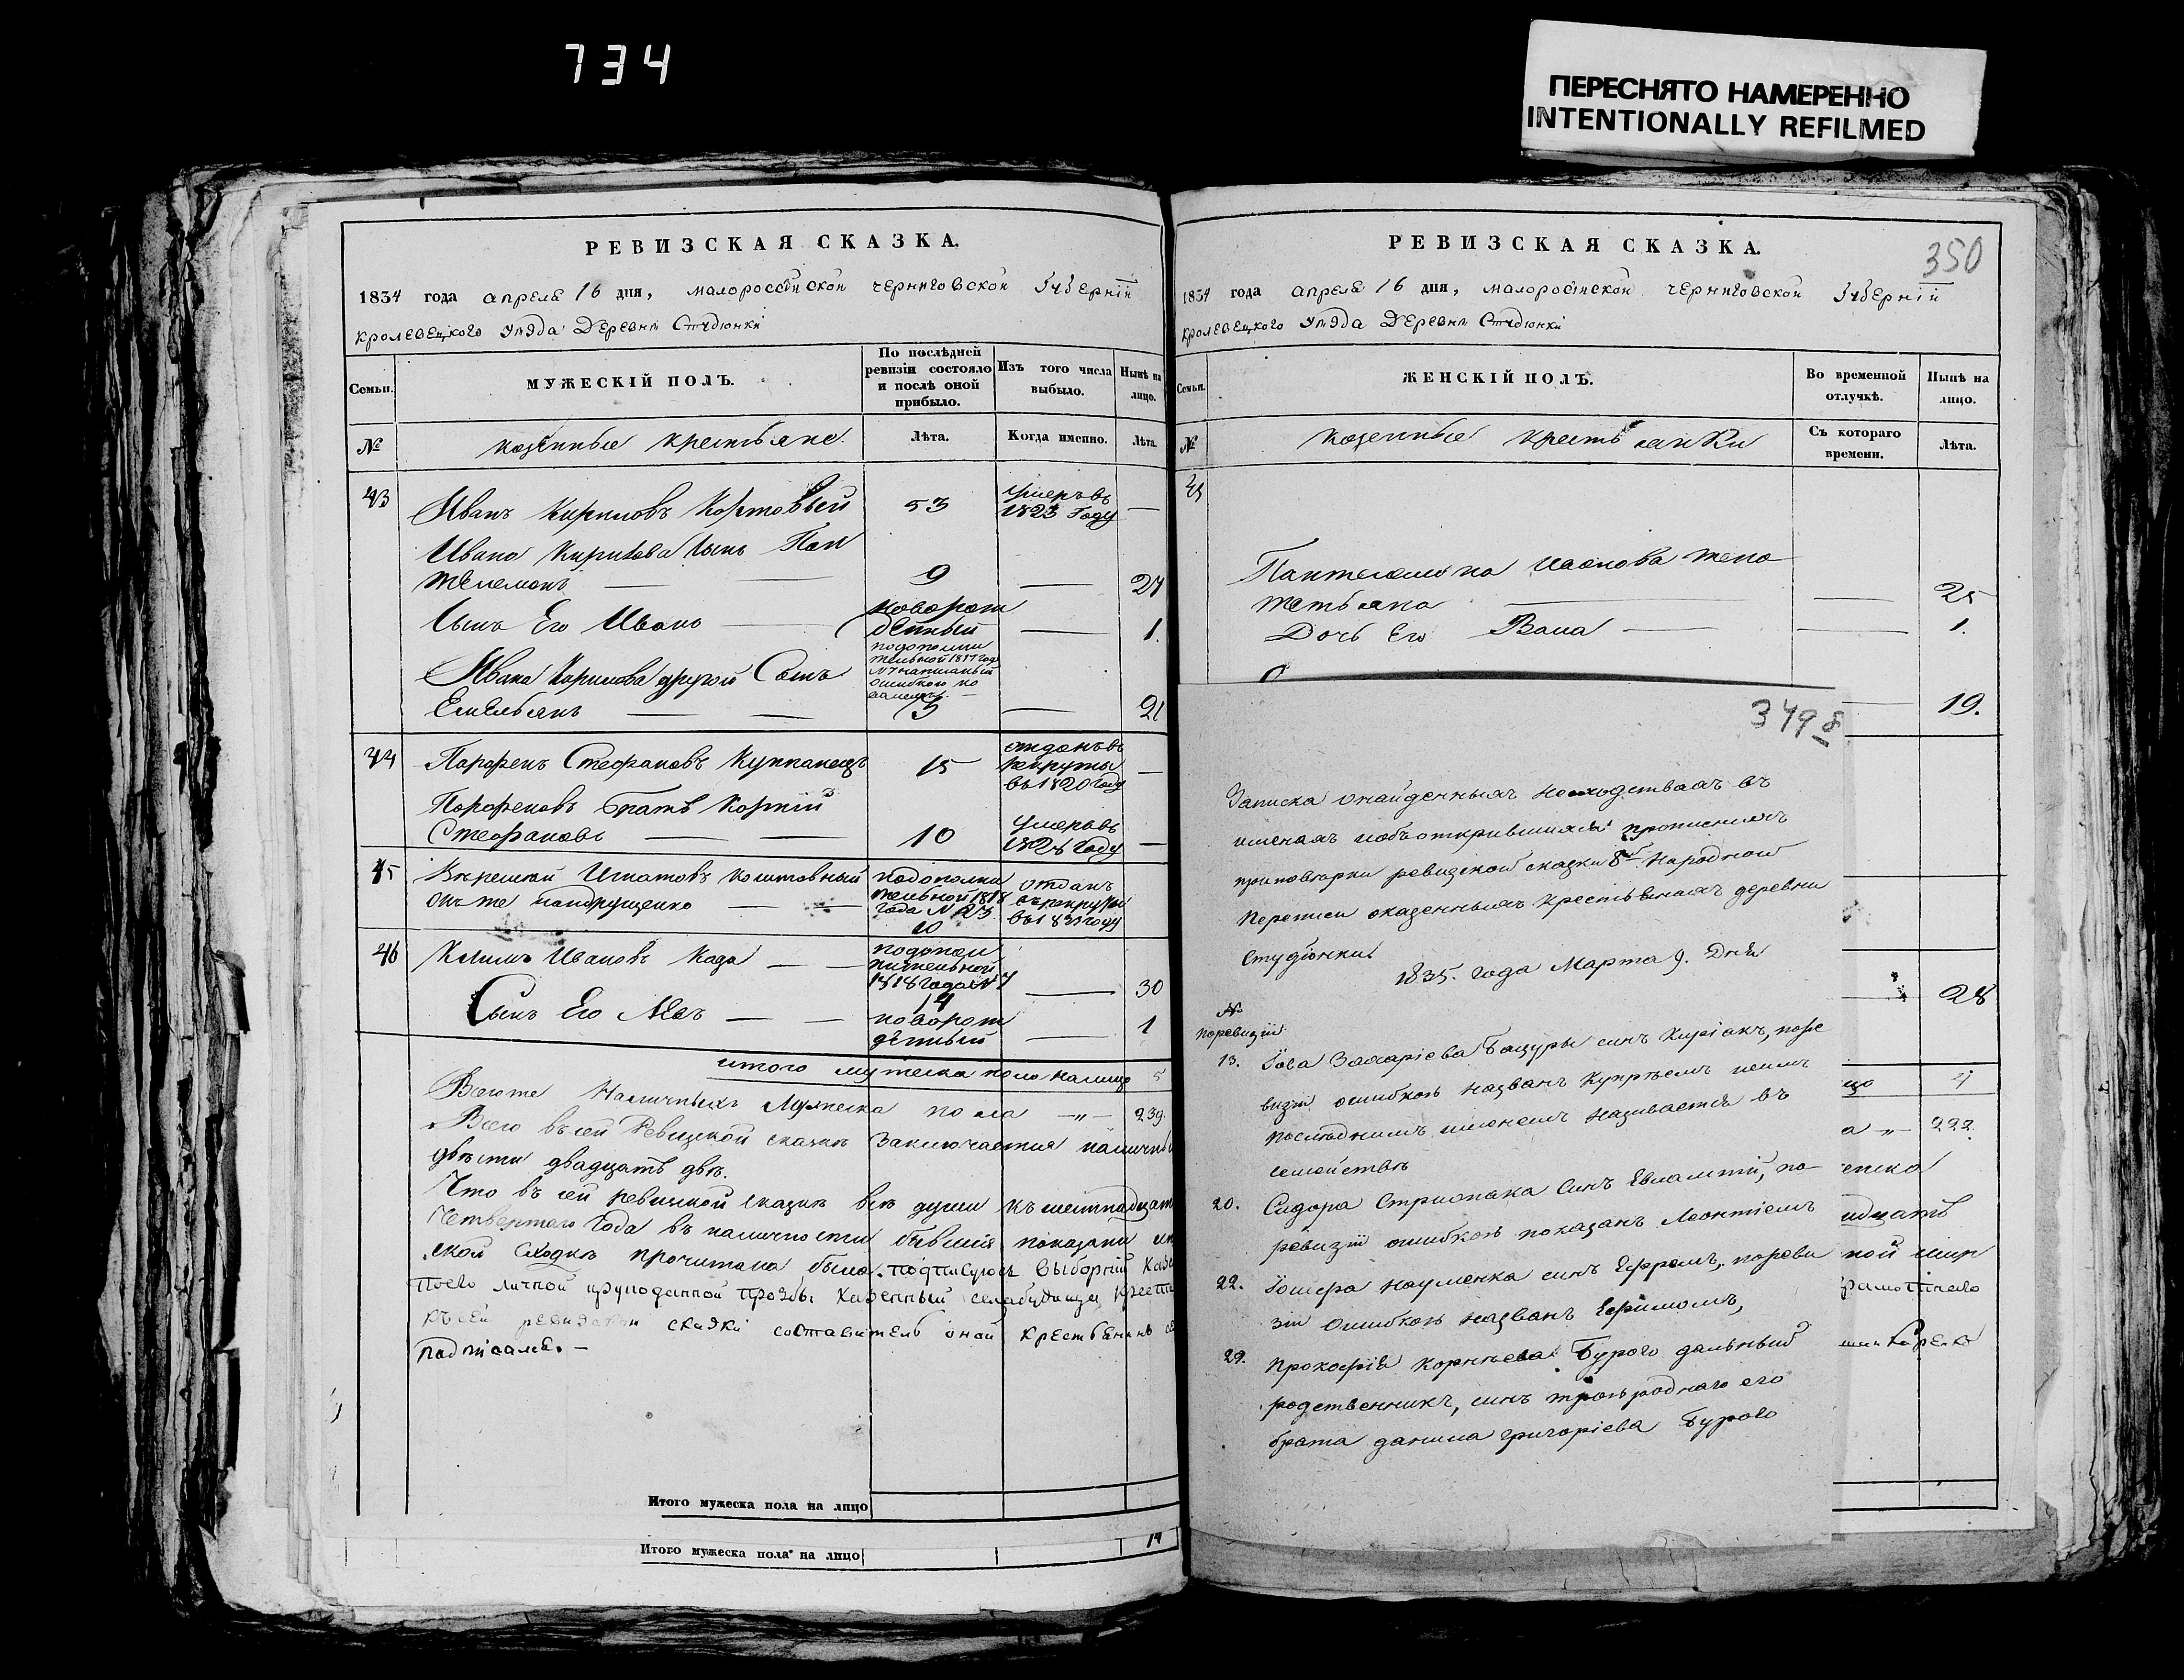 734
ПЕРЕСНЯТО НАМЕРЕННО
INTENTIONALLY REFILMED
РЕВИЗСКАЯ СКАЗКА.
1834 года апреля 16 дня, малоросѣйской черниговской Губерніи
кролевецкого уѣзда Деревни Студіонки
Семьи.
МУЖЕСКІЙ ПОЛЪ.
По послѣдней ревизіи состояло и послѣ оной прибыло.
Изъ того числа выбыло.
Нынѣ на лицо.
№
казенные крестьяне.
Лѣта.
Когда именно.
Лѣта.
43
Иванъ Кириловъ Кортовый 53 умеръ въ 1823 Году —
Ивана Кирилова Сынъ Пан
телемонъ — 9 — 27
Сынъ Его Иванъ — новорож
денный — 1.
подополни
тельной 1817 года
Ивана Кирилова другой Сынъ
Емельянъ — 5 — 21
44 Парфенъ Стефановъ 15 отданъ въ рекруты въ 1820 году —
Парфеновъ братъ Корнѣй
Стефановъ — 10 умеръ въ 1828 Году —
45 Игнатовъ подополни
тельной 1818
года № 23
10
отданъ
в рекруты
в 1831 году
онъ же
46 Климъ Ивановъ Кода — подополнительной
1818 года № 7
14 — 30
Сынъ Его Левъ — новорож
денный — 1
итого мужеска пола налицо 5
Всего же Наличныхъ Мужеска пола — „ — 239.
Всего въ сей Ревизской сказкѣ Заключается наличны
двѣсти двадцать двѣ.
Что въ сей ревизской сказкѣ всѣ души къ шестнадцат
Четвертого Года въ наличности бывшія показаны
ской Сходкѣ прочитана была. подписуюсь выборній
По его личной рукоданной прозбы Казенный
Къ сей ревизской сказки составитель оной крестьенинъ
подписалъ. —
Итого мужеска пола на лицо
Итого мужеска пола на лицо 14
РЕВИЗСКАЯ СКАЗКА.
350
1834 года апреля 16 дня, малоросінской черниговской Губерніи
кролевецкого уѣзда Деревни Студіонки
Семьи.
ЖЕНСКІЙ ПОЛЪ.
Во временной отлучкѣ.
Нынѣ на лицо.
№
казенные крестьянки
Съ котораго времени.
Лѣта.
Пантелемона Иванова жена
татьяна — — 25
Дочь Его — — 1.
— 19.
349
Записка о найденныхъ несходствахъ въ
именахъ и объ открившихся прописныхъ
при поверки ревизской сказки 8й Народной
Переписи о казенныхъ Крестьянахъ деревни
Студіонки
1835. года Марта 9. Дня
№
по ревизіи
13. Іова Захаріева Бацуры синъ Киріакъ, поре
визіи ошибкою названъ Купріемъ и симъ
последнимъ именемъ називается въ
семействѣ
20. Сидора синъ Евлампій, по
ревизіи ошибкою показанъ Леонтіемъ
22. Іосифа Науменка синъ Ефремъ, по реви
зіи ошибкою названъ Ефимомъ,
29. Прокофія Корнѣева Бурого дальный
родственникъ, синъ троюроднаго его
брата данила григоріева Бурого
— 28
цо 4
а „ 222.